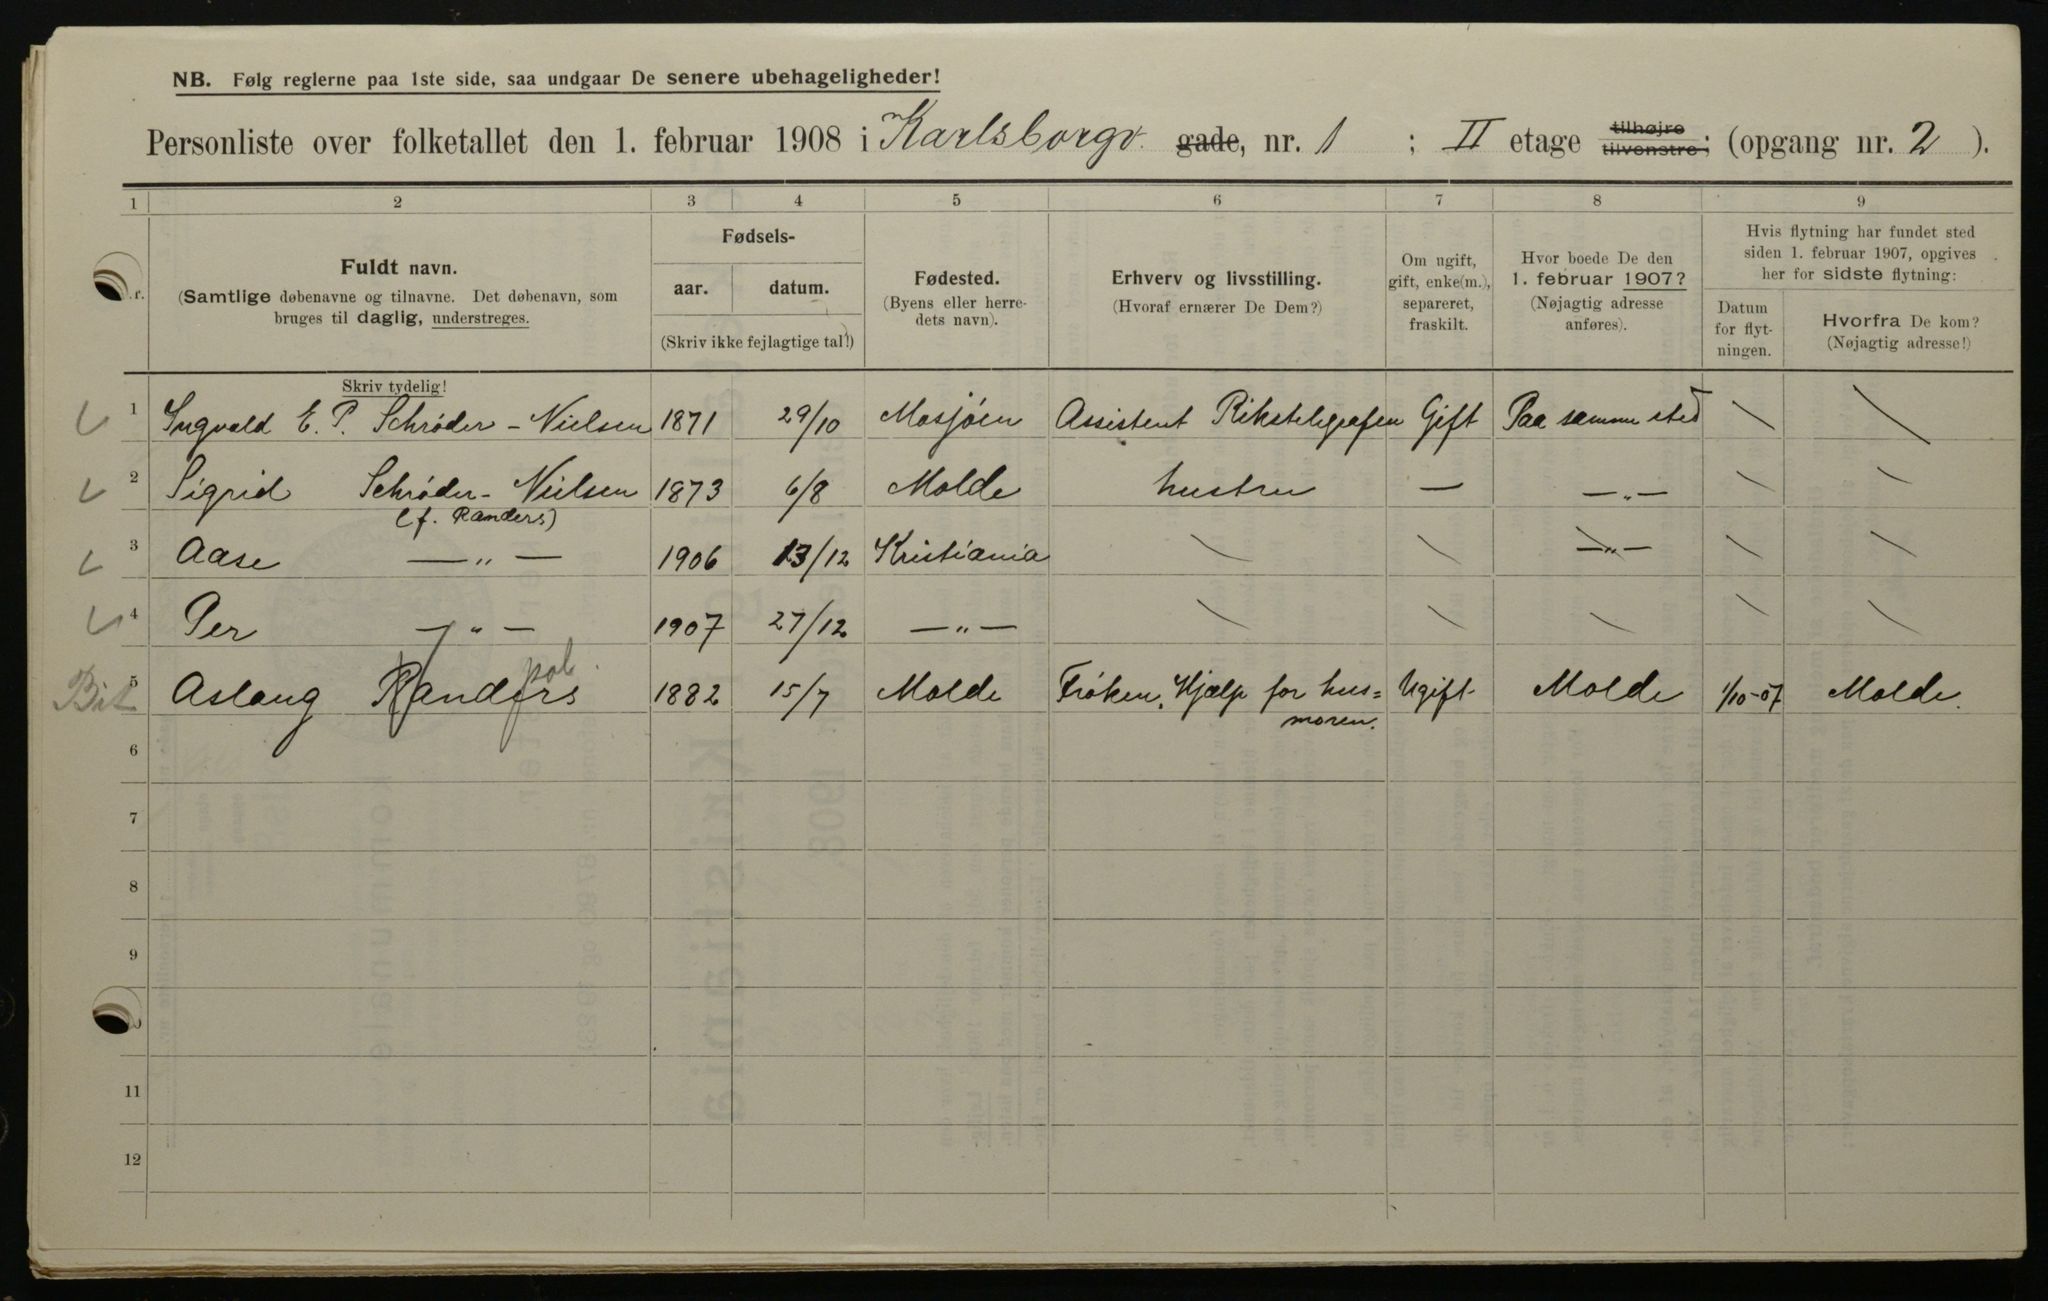 NB. Følg reglerne paa 1ste side, saa undgaar De senere ubehageligheder!
Personliste over folketallet den 1. februar 1908 i Karlsborgv. gade, nr. 1 ; II etage tilhøjre tilvenstre; (opgang nr. 2 ).
1 2 3 4 5 6 7 8 9
Nr.
Fuldt navn.
(Samtlige døbenavne og tilnavne. Det døbenavn, som
bruges til daglig, understreges.
Skriv tydelig!
Fødsels-
aar. datum.
(Skriv ikke fejlagtige tal!)
Fødested.
(Byens eller herre-
dets navn).
Erhverv og livsstilling.
(Hvoraf ernærer De Dem?)
Om ugift,
gift, enke(m.),
separeret,
fraskilt.
Hvor boede De den
1. februar 1907?
(Nøjagtig adresse
anføres).
Hvis flytning har fundet sted
siden 1. februar 1907, opgives
her for sidste flytning:
Datum
for flyt-
ningen.
Hvorfra De kom?
(Nøjagtig adresse!)
1 Ingvald E. P. Schrøder - Nielsen 1871 29/10 Mosjøen Assistent Rikstelegrafen Gift Paa samme sted
2 Sigrid Schrøder - Nielsen 1873 6/8 Molde hustru — —„—
(f. Randers)
3 Aase —„— 1906 13/12 Kristiania —„—
4 Per —„— 1907 27/12 —„—
pol.
Bit 5 Aslaug Randers 1882 15/7 Molde Frøken. Hjælp for hus= Ugift Molde 1/10-07 Molde.
moren.
6
7
8
9
11
12